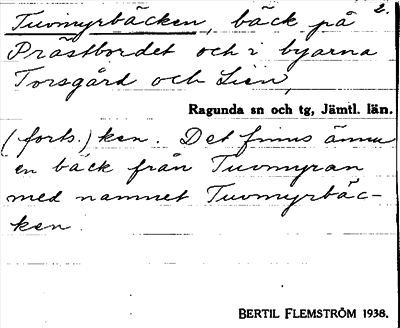 2.
Tuvmyrbäcken, bäck på
Prästbordet och i byarna
Torsgård och Lien,
Ragunda sn och tg, Jämtl. län.
(forts.) ken. Det finns ännu
en bäck från Tuvmyran
med namnet Tuvmyrbäc-
ken.
BERTIL FLEMSTRÖM 1938.